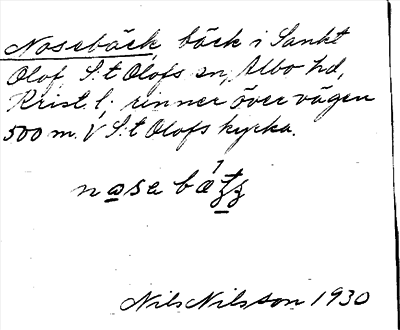 Nosebäck, bäck i Sankt
Olof, S:t Olofs sn, Albo hd,
Krist. l. rinner över vägen
500 m. V S:t Olofs kyrka.
Nils Nilsson 1930